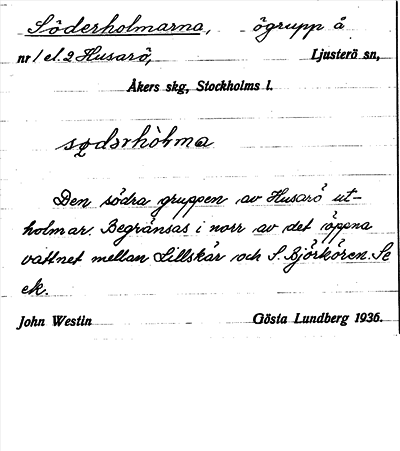 Söderholmarna, ögrupp å
nr 1 el. 2 Husarö, Ljusterö sn,
Åkers skg, Stockholms l.
Den södra gruppen av Husarö ut-
holmar. Begränsas i norr av det öppna
vattnet mellan Lillskär och S. Björkören. Se
ek.
John Westin Gösta Lundberg 1936.